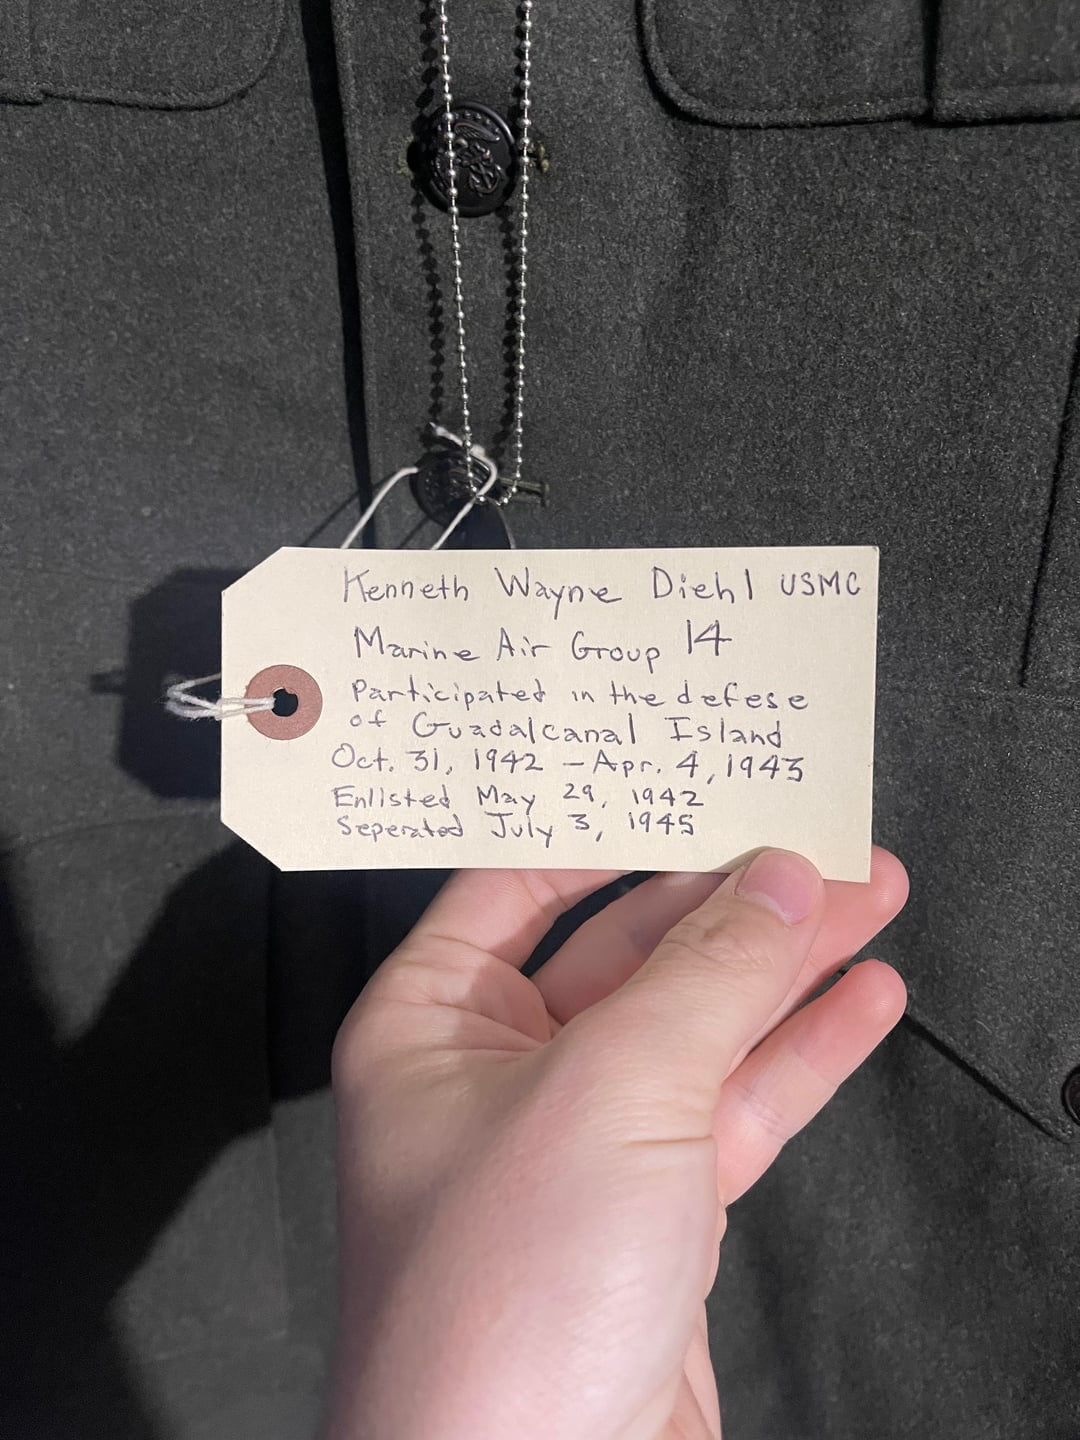 Kenneth Wayne Diehl USMC
Marine Air Group 14
Participated in the defese
of Guadalcanal Island
Oct. 31, 1942 - Apr. 4, 1943
Enlisted May 29, 1942
Seperated July 3, 1945